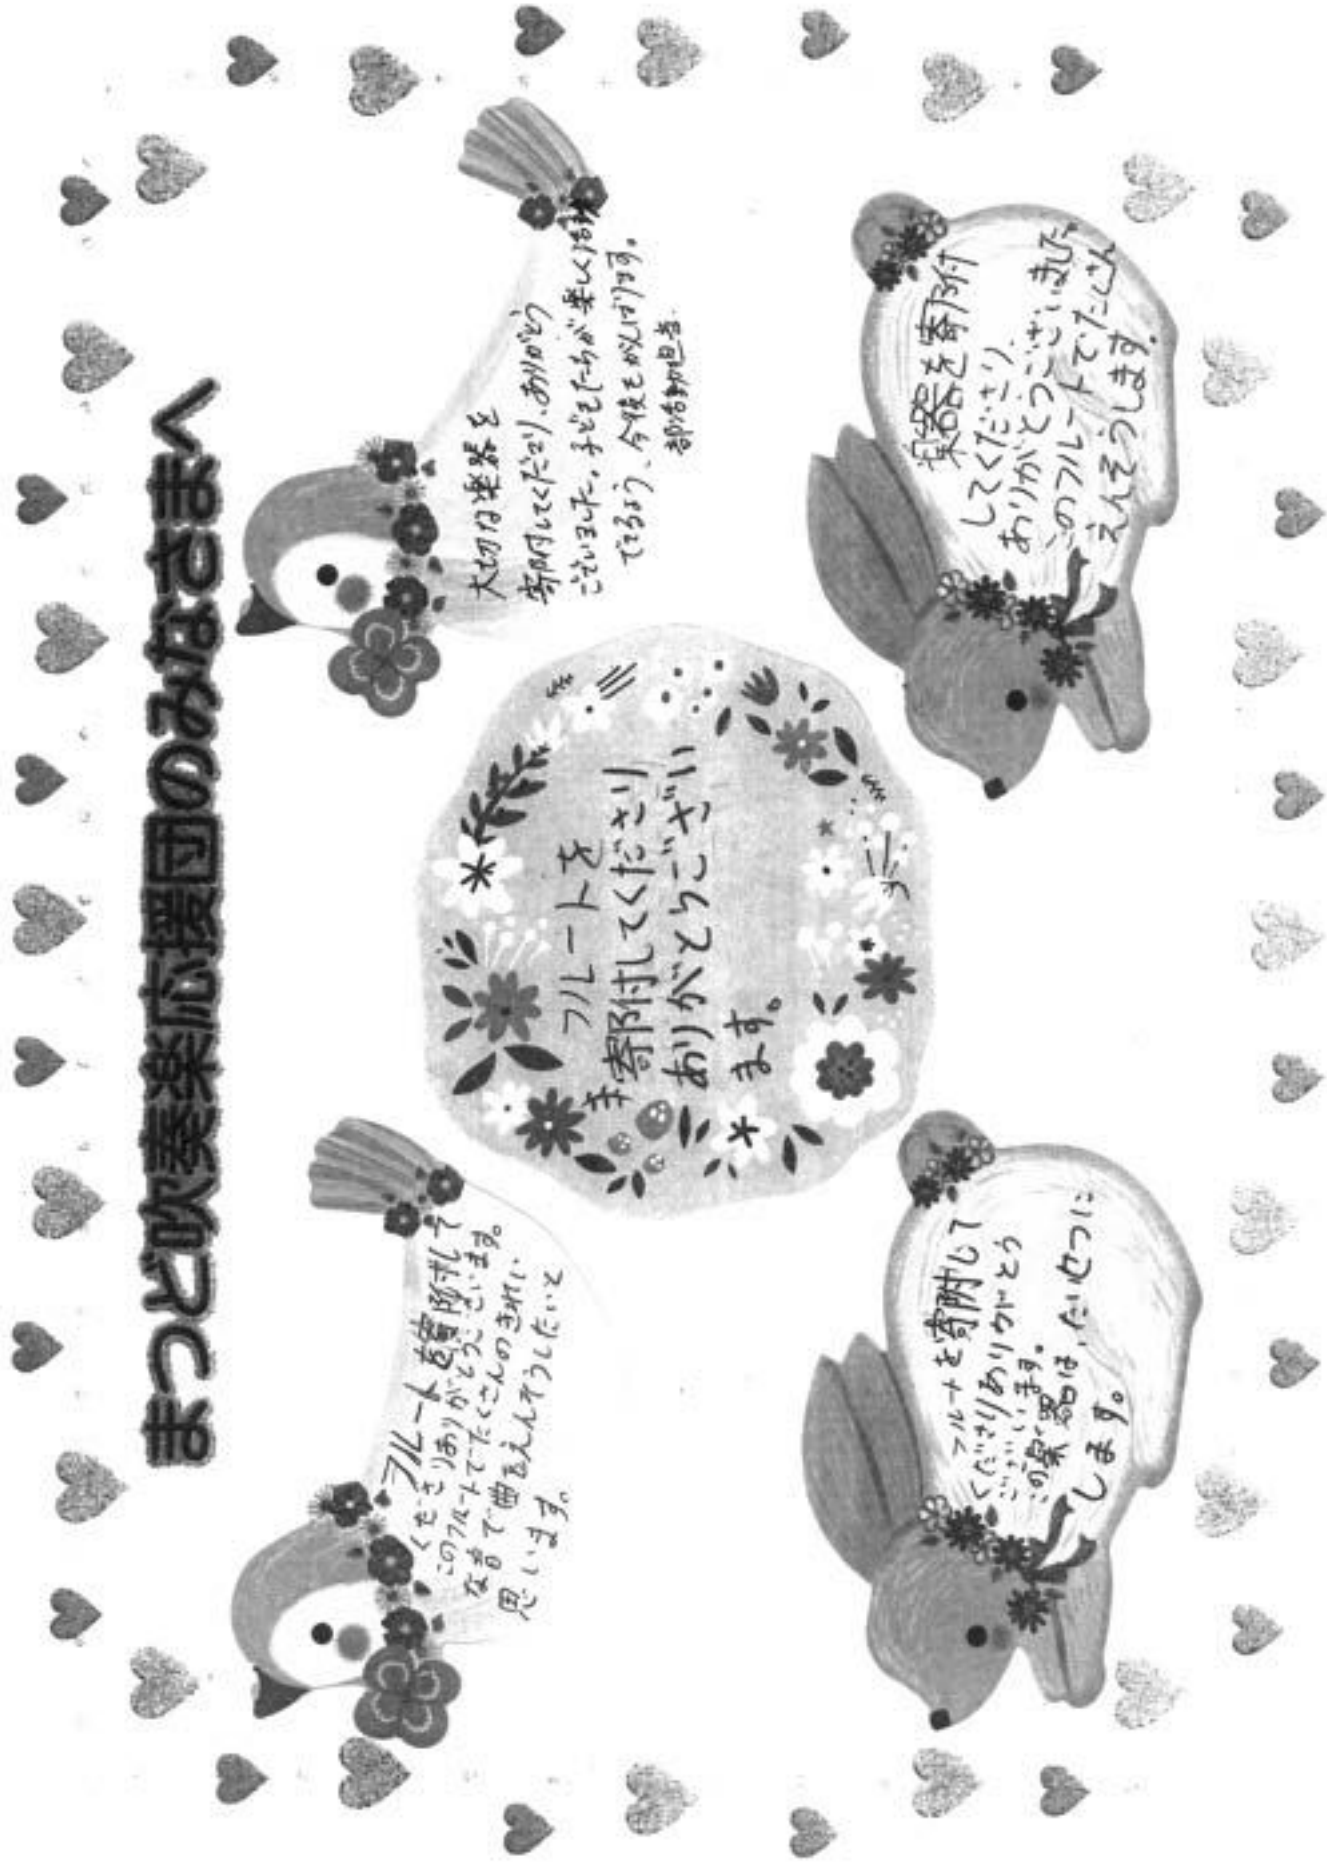 まつど吹奏楽応援団のみなさまへ
フルートを寄附して
くださりありがとうございます。
このフルートでたくさんのきれい
な音で曲をえんそうしたいと
思います。
大切な楽器を
寄附してくださり、ありがとう
ございました。子どもたちが楽しく活動
できるよう、今後もがんばります。
部活動担当
フルートを
寄附してくださり
ありがとうござい
ます。
フルートを寄附して
くださりありがとう
ございます。
この楽器は、たいせつに
します。
楽器を寄附
してくださり、
ありがとうございました
このフルートでたくさん
えんそうします。